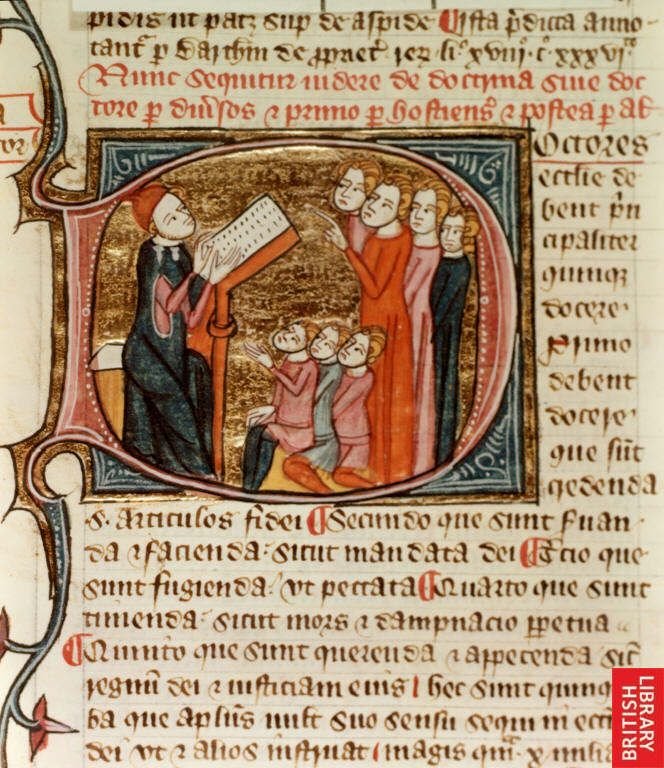 pidis ut patz sup de aspide Ista pdicta anno
tant p
Nunc sequitur uidere de doctrina siue doc
tore p diusos ⁊ primo p hostiens ⁊ postea p ab
Octores
ecclie de
bent pn
cipaliter
quinqz
docere
primo
debent
docere
que sut
credenda
s. articulos fidei Secundo que sunt suan
da ⁊ facienda sicut mandata dei Tcio que
sunt fugienda vt peccata Quarto que sunt
timenda sicut mors ⁊ dampnacio ppetua
Quinto que sunt querenda ⁊ appetenda sic
regnu dei ⁊ iusticiam eius hec sunt quinq
ba que aplus uult suo sensu sequi in
dei vt ⁊ alios instruat magis
BRITISH
LIBRARY